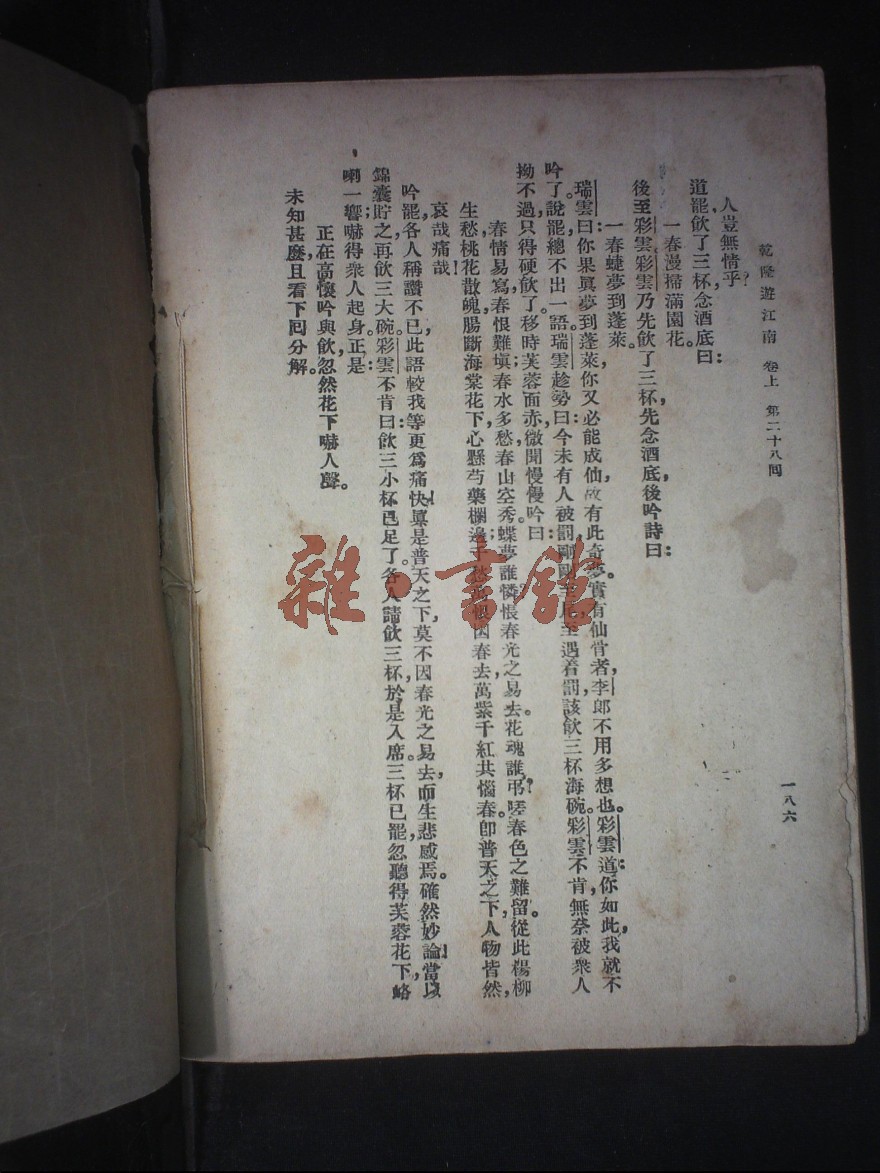 乾隆遊江南　卷上　第二十八回
一八六
人豈無情乎？
道罷，飲了三杯，念酒底曰：
一春漫掃滿園花
後至彩雲，彩雲乃先飲了三杯，先念酒底，後吟詩曰：
一春蜨夢到蓬萊。
瑞雲曰：你果眞夢到蓬萊，你又必能成仙，故有此奇夢。實有仙骨者，李郎不用多想也。彩雲道：你如此，我就不
吟了。說罷，總不出一語。瑞雲趁勢曰：今未有人被罰，剛剛至尾，至遇着罰，該飲三杯海碗。彩雲不肯，無奈被衆人
拗不過，只得硬飲了。移時芙蓉面赤，微聞慢慢吟曰：
春情易寫，春恨難塡；春水多愁，春山空秀。蝶夢誰憐，悵春光之易去。花魂誰弔？嗟春色之難留。從此楊柳
生愁，桃花散魄，腸斷海棠花下，心懸芍藥欄邊；因春去，萬紫千紅共惱春。卽普天之下，人物皆然，
哀哉痛哉！
吟罷，各人稱讚不已，此語較我等更爲痛快！眞是普天之下，莫不因春光之易去，而生悲感焉。確然妙論！當以
錦囊貯之，再飲三大碗。彩雲不肯曰：飲三小杯已足了。各人請飲三杯，於是入席。三杯已罷，忽聽得芙蓉花下，略
喇一響；嚇得衆人起身。正是：
正在高懷吟與飲，忽然花下嚇人聲。
未知甚麽，且看下囘分解。
雜·書館